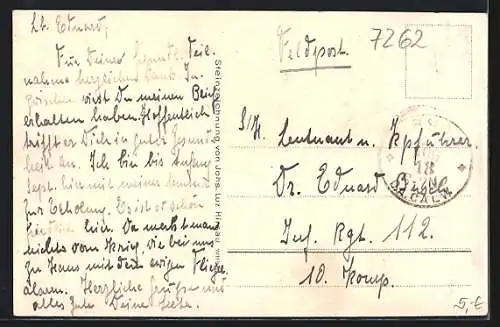 Lb. Eduard,
Für Deine freundl. Teil-
nahme herzlichen Dank. In-
zwischen wirst Du meinen Brief
erhalten haben. Hoffentlich
trifft er Dich in guter Gesund-
heit an. Ich bin bis Anfang
Sept. hier mit meiner
zur Erholung. Es ist so schön
hier. Da merkt man
nichts vom Krieg, wie bei uns
zu Haus mit den ewigen Flieger-
alarm. Herzliche Grüsse und
alles Gute Deine
Steinzeichnung von Johs. Luz Hirsau
Feldpost.
7262
S/H. Leutnant u. Kpführer
Dr. Eduard
Inf. Rgt. 112.
10. Komp.
18
CALW
5,-€